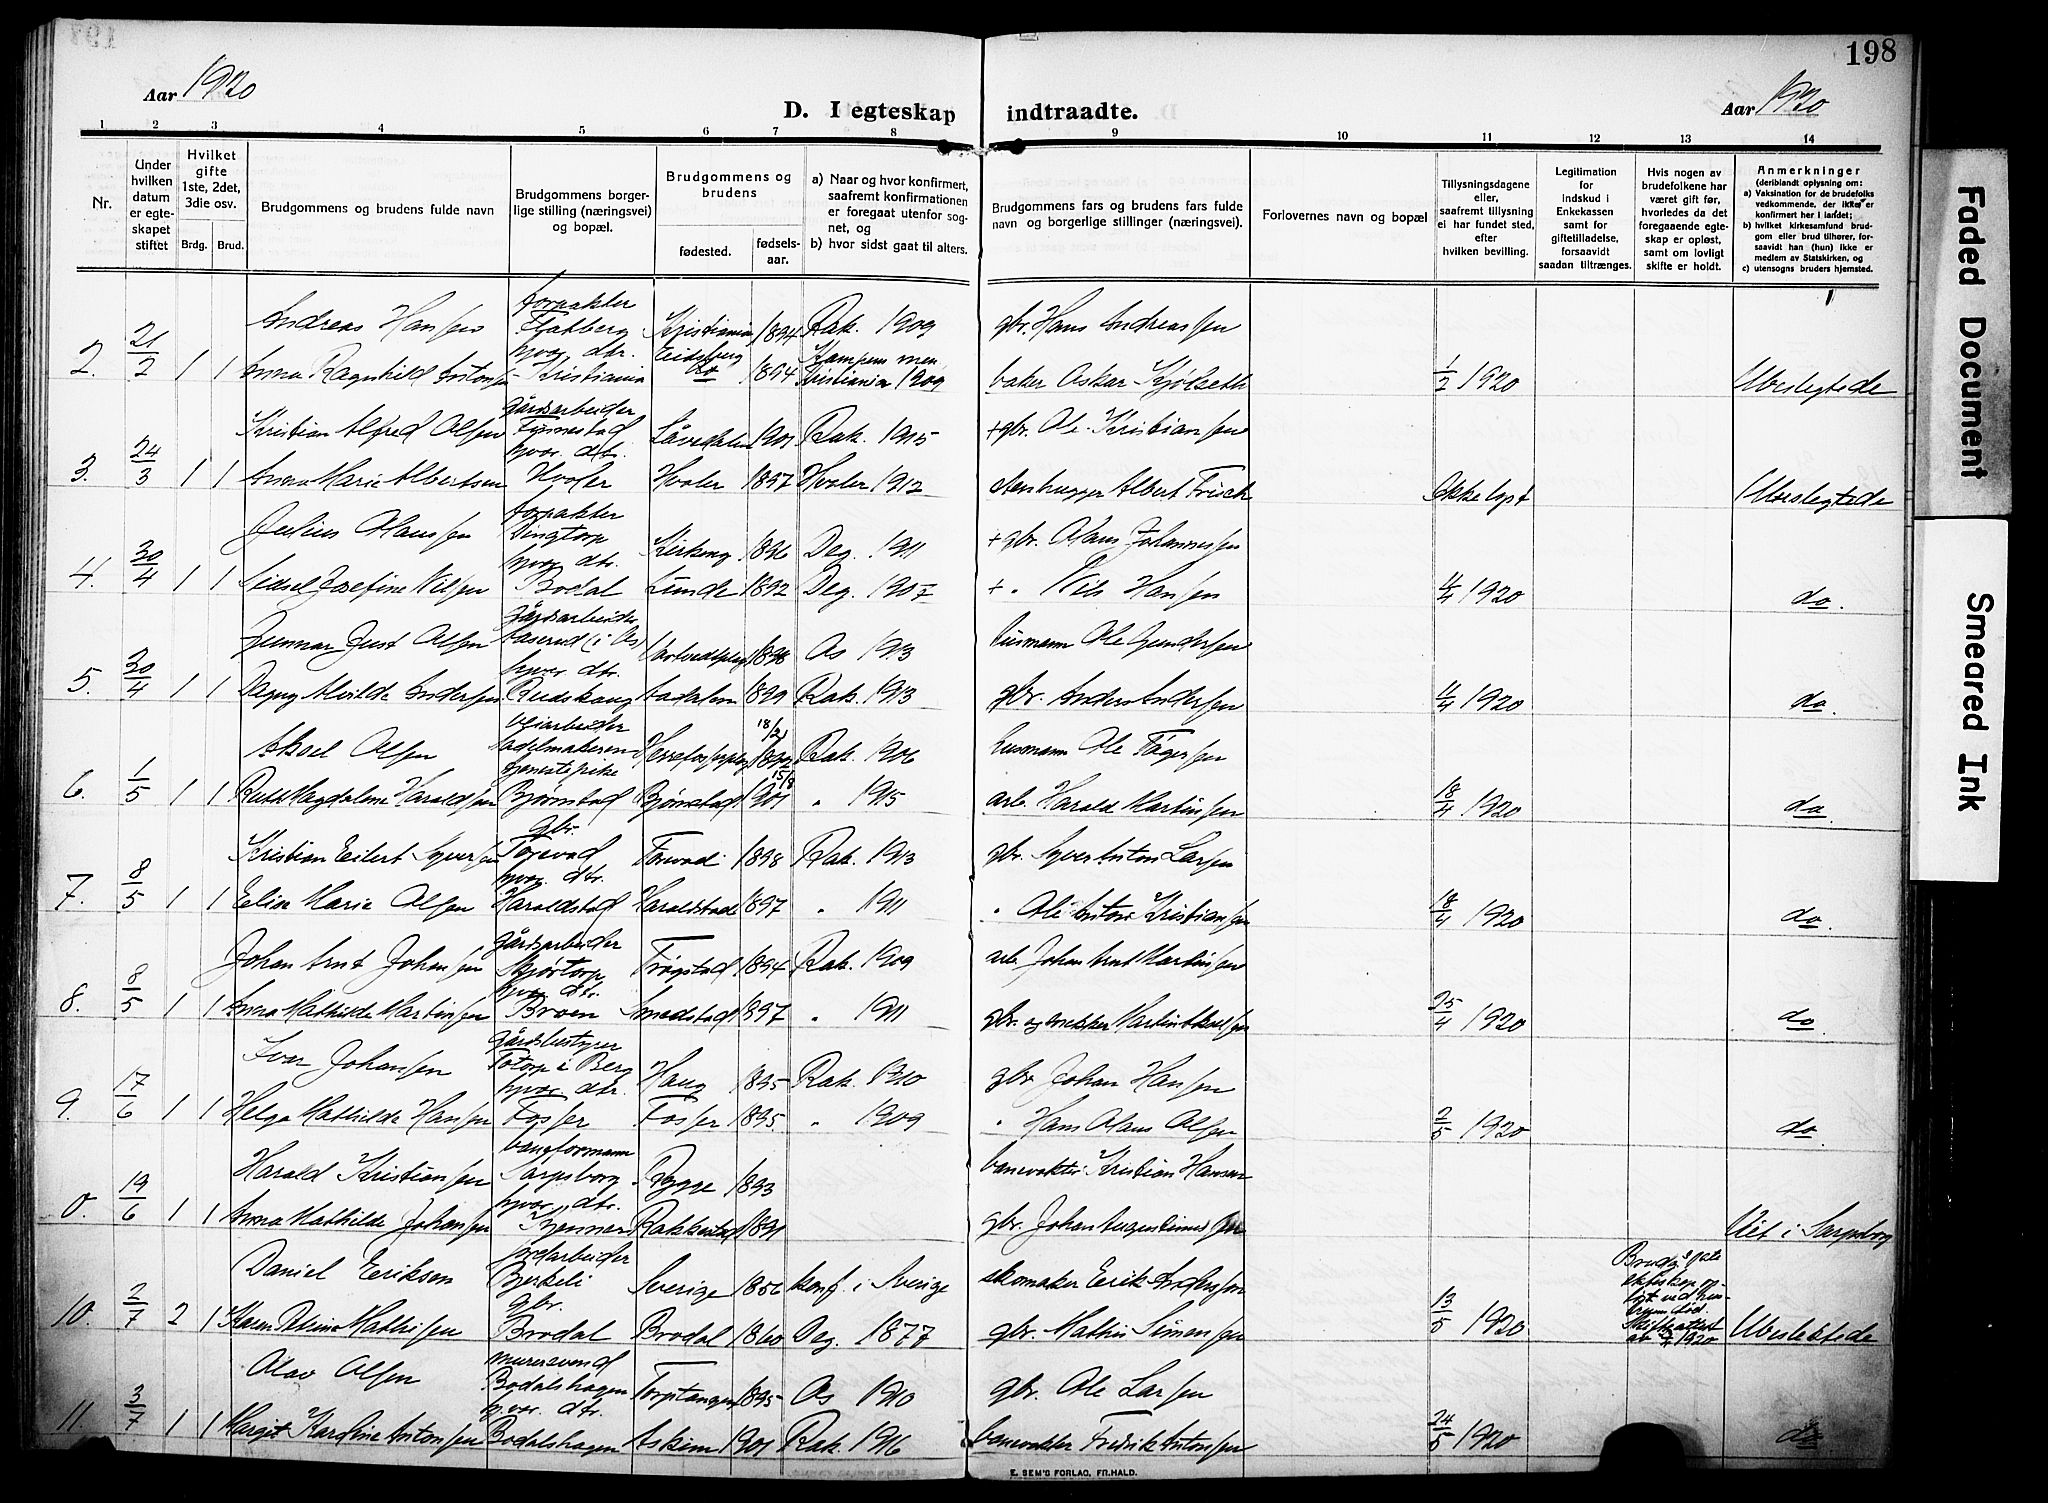 198
Aar 1920
Aar 1920
D. I egteskap indtraadte.
1 2 3 4 5 6 7 8 9 10 11 12 13 14
Nr.
Under hvilken datum er egteskapet stiftet
Hvilket gifte 1ste, 2det, 3die osv.
Brdg. Brud.
Brudgommens og brudens fulde navn
Brudgommens borgerlige stilling (næringsvei) og bopæl.
Brudgommens og brudens
fødested. fødselsaar.
a) Naar og hvor konfirmert, saafremt konfirmationen er foregaat utenfor sognet, og
b) hvor sidst gaat til alters.
Brudgommens fars og brudens fars fulde navn og borgerlige stillinger (næringsvei).
Forlovernes navn og bopæl
Tillysningsdagene eller, saafremt tillysning ei har fundet sted, efter hvilken bevilling.
Legitimation for Indskud i Enkekassen samt for giftetilladelse, forsaavidt saadan tiltrænges.
Hvis nogen av brudefolkene har været gift før, hvorledes da det foregaaende egteskap er opløst, samt om lovligt skifte er holdt.
Anmerkninger (deriblandt oplysning om:
a) Vaksination for de brudefolks vedkommende, der ikke er konfirmert her i landet;
b) hvilket kirkesamfund brudgom eller brud tilhører, forsaavidt han (hun) ikke er medlem av Statskirken, og
c) utensogns bruders hjemsted.
forpakter
Andreas Hansen Flatberg Kristiania 1894 Rak. 1909 gbr. Hans Andreassen
gvor. dtr. Eidsberg Kampens men.
2. 21/2 1 1 Anna Ragnhild Antonsen Kristiania do 1894 Kristiania 1909 baker Oskar Kjølseth 1/2 1920 Ubeslegtede
gårdsarbeider
Kristian Alfred Olsen Finnestad 1901 Rak. 1915 + gbr. Ole Kristiansen
gvor. dtr.
3. 24/3 1 1 Anna Marie Albertsen Hvaler Hvaler 1897 Hvaler 1912 stenhugger Albert Frisch Ikke lyst Ubeslegtede
forpakter
Julius Hansen Dingtorp Kirkeng 1896 Deg. 1911 + gbr. Hans Johannessen
gvor. dtr.
4. 30/4 1 1 Sidsel Josefine Nilsen Bodal Lunde 1892 Deg. 1907 + " Nils Hansen 11/4 1920 do.
gårdsarbeider
Gunnar Just Olsen Taserud (i Os) 1898 Os 1913 husmann Ole Gundersen
gvor. dtr.
5. 30/4 1 1 Dagny Alvilde Andersen Rudskaug 1899 Rak. 1913 gbr. Anders Andersen 11/4 1920 do.
veiarbeider 18/2
Aksel Olsen Sadelmakeren 1892 Rak. 1906 husmann Ole
tjenestepike 15/8
6. 1/5 1 1 Ruth Magdalene Haraldsen Bjørnstad Bjørnstad 1901 " 1915 arb. Harald Martinsen 18/4 1920 do.
gbr.
Kristian Eilert Syversen Torevad Torevad 1898 Rak. 1913 gbr. Syver Anton Larsen
gvor. dtr.
7. 8/5 1 1 Elise Marie Olsen Haraldstad Haraldstad 1897 " 1911 " Ole Anton Kristiansen 18/4 1920 do.
gårdsarbeider
Johan Arnt Johansen Skjørtorp Trøgstad 1894 Rak. 1909 arb. Johan Arnt Martinsen
gvor. dtr.
8. 8/5 1 1 Anna Mathilde Martinsen Broen Smedstad 1897 " 1911 gbr. og snekker Martin Akselsen 25/4 1920 do.
gårdsbestyrer
Ivar Johansen Totorp i Berg Haug 1895 Rak. 1910 gbr Johan Hansen
gvor. dtr.
9. 17/6 1 1 Helga Mathilde Hansen Fosser Fosser 1895 " 1909 " Hans Olaus Olsen 2/5 1920 do.
baneformann
Harald Kristiansen Sarpsborg Rygge 1893 banevokter Kristian Hansen
gvor. dtr.
0. 19/6 1 1 Anna Mathilde Johansen Kjenner Rakkestad 1891 gbr. Johan Augustinus Viet i Sarpsborg
jordarbeider
Daniel Eriksen Bjerkeli Sverige 1856 konf. i Sverige skomaker Erik Andersson
gbr.
Brudg.s forrige ekteskap opløst ved hustruens død. Skifteattest av 1920
10. 2/7 2 1 Karen Petrine Mathisen Brodal Brodal 1860 Deg. 1877 gbr. Mathis Simensen 13/5 1920 Ubeslektede
murersvend
Olav Olsen Bodalshagen Torptangen 1895 Os 1910 gbr. Ole Larsen
gvor. dtr.
11. 3/7 1 1 Margit Karoline Antonsen Bodalshagen Askim 1901 Rak. 1916 banevokter Fredrik Antonsen 24/5 1920 do
E. SEM'S FORLAG, FR.HALD.
Faded Document
Smeared Ink